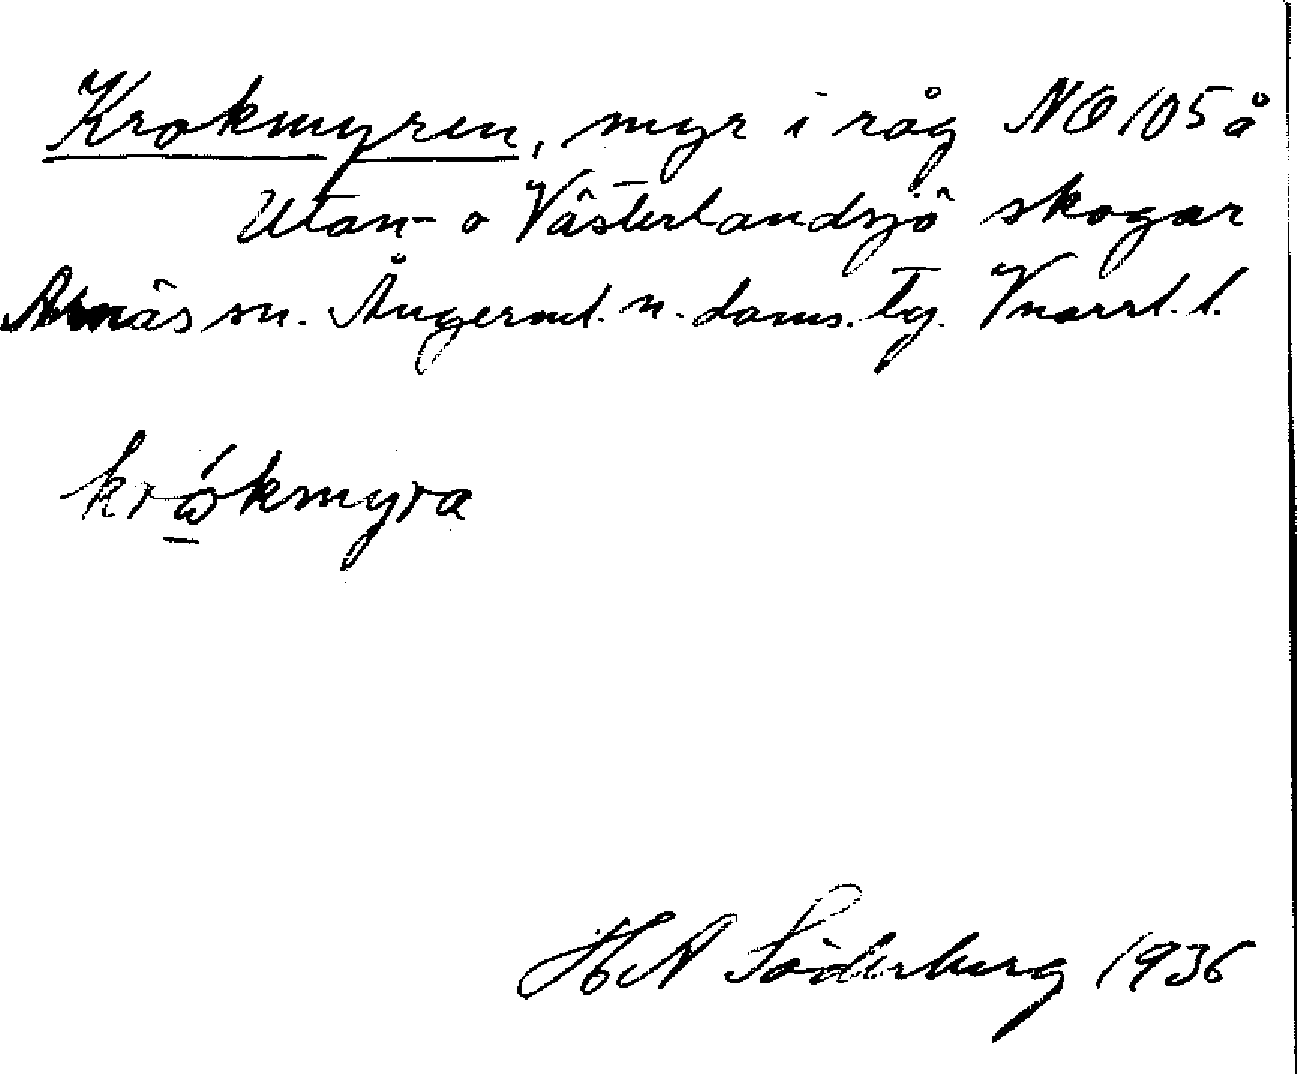 Krokmyren, myr i råg NO 105 å
Utan- o Västerlandsjö skogar
Arnäs sn. Ångerml. n. doms. tg. Vnorrl. l.
krókmyra
H A Söderberg 1936